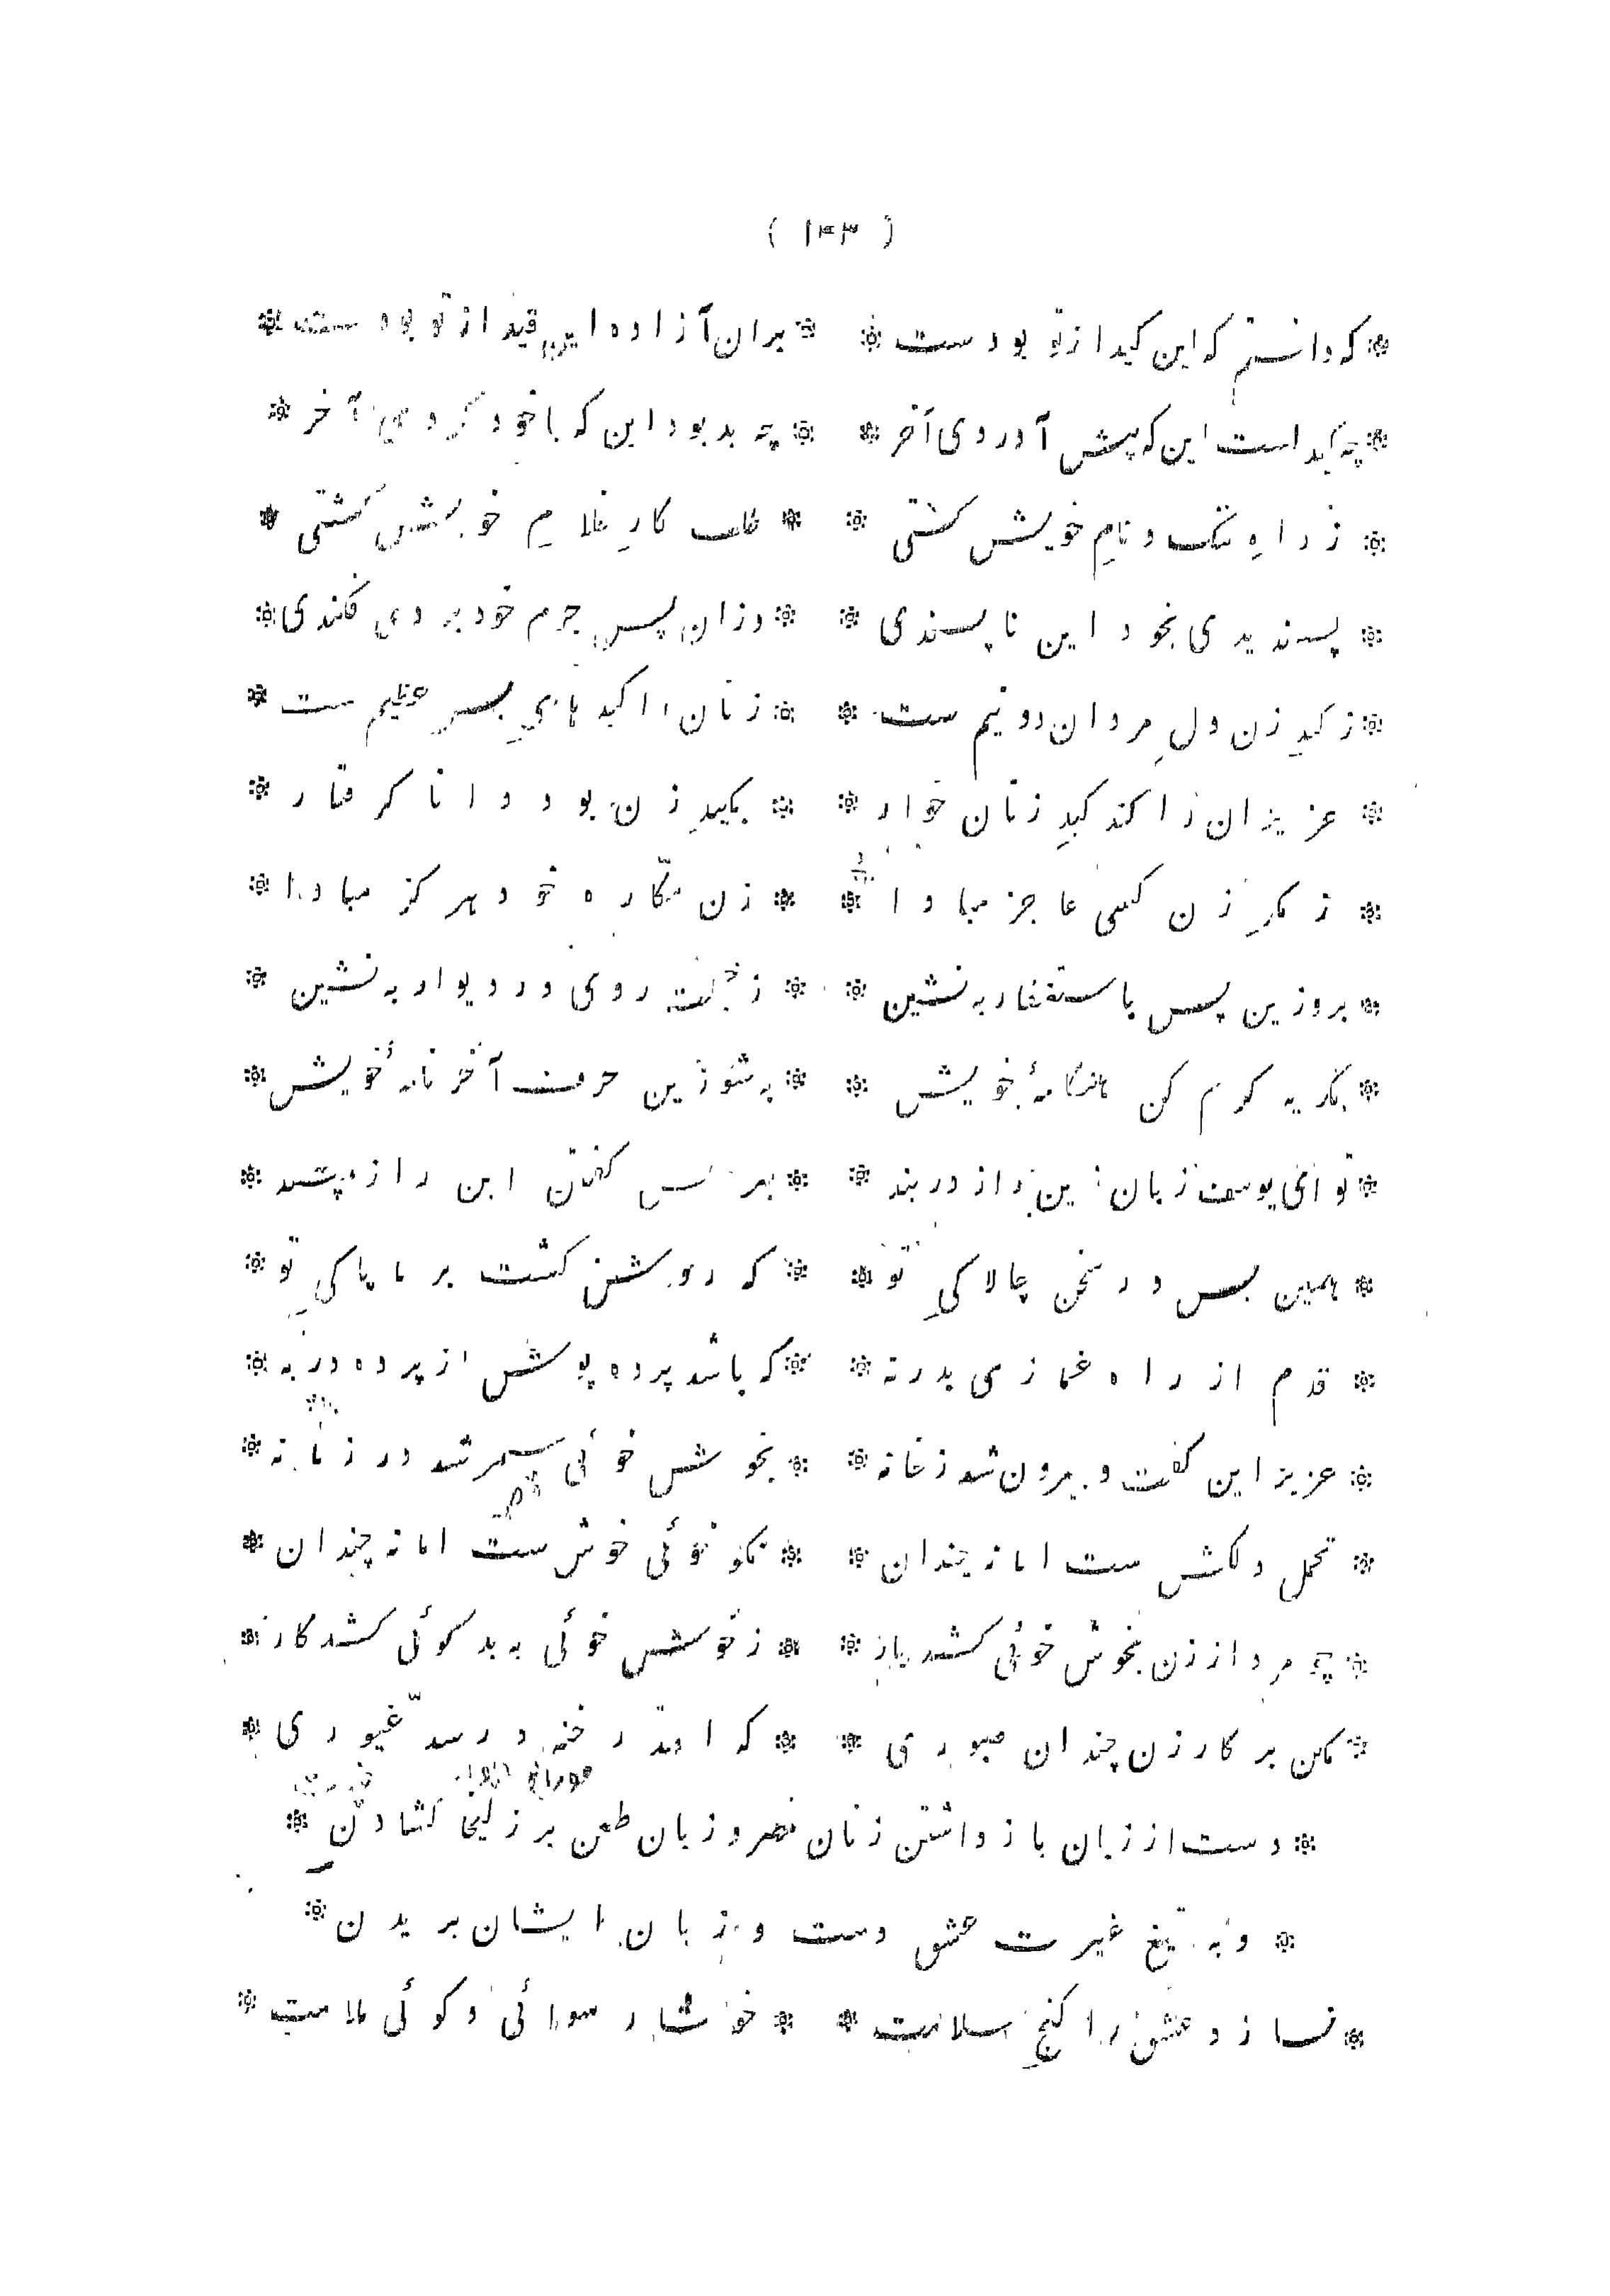 ( ۱۴۳ )
* که دانستم که این کید از تو بودست * * بران آزاده این قید از تو بودست *
* چه کید است این که پیش آوردی آخر * * چه بد بود این که با خود کردی آخر *
* ز راهِ ننگ و نامِ خویش گشتی * * طلب کارِ غلامِ خویش گشتی *
* پسندیدی بخود این ناپسندی * * وزان پس جرم خود بر وی فکندی *
* ز کیدِ زن دلِ مردان دو نیم ست * * زنان را کیدهایِ بس عظیم ست *
* عزیزان را کند کیدِ زنان خوار * * بکیدِ زن بود دانا گرفتار *
* ز مکرِ زن کسی عاجز مبادا * * زن مکّاره خود هرگز مبادا *
* برو زین پس باستغفار به نشین * * ز خجلت روی در دیوار به نشین *
* بگریه گرم کن هنگامهٔ خویش * * به شو زین حرف آخر نامهٔ خویش *
* تو ای یوسف زبان زین راز در بند * * بهر کس گفتن این راز مپسند *
* همین بس در سخن چالاکیِ تو * * که روشن گشت بر ما پاکیِ تو *
* قدم از راه غمازی بدر نه * * که باشد پرده پوش از پرده در به *
* عزیز این گفت و بیرون شد ز خانه * * بخوش خوئی سمر شد در زمانه *
* تحمل دلکش ست اما نه چندان * * نکو خوئی خوش ست اما نه چندان *
* چو مرد از زن بخوش خوئی کشد بار * * ز خوش خوئی به بد گوئی کشد کار *
* مکن بر کار زن چندان صبوری * * که افتد رخنه در سدّ غیوری *
* دست از زبان باز داشتن زنان مصر و زبان طعن بر زلیخا گشادن *
* و به تیغ غیرت عشق دست و زبان ایشان بریدن *
* نسازد عشق را کنجِ سلامت * * خوشا رسوائی و کوئی ملامت *